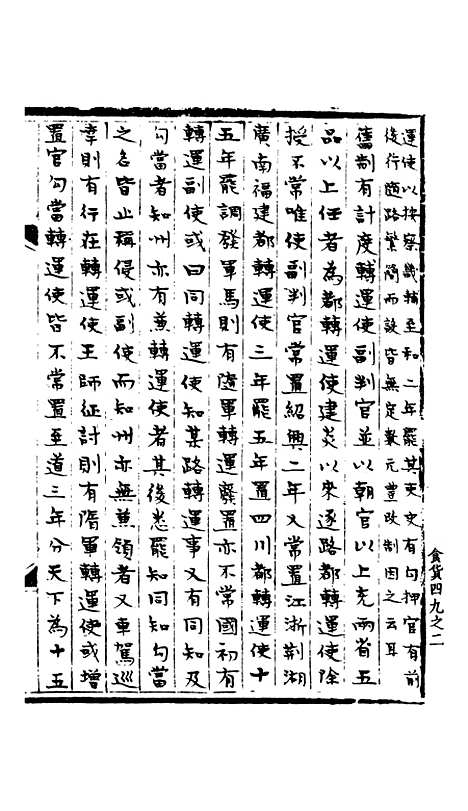 運使以按察畿輔至和二年罷其吏史有勾押官有前
後行隨路繁簡而設皆無定數元豐改制因之云耳
舊制有計度轉運使副判官並以朝官以上充兩省五
品以上任者為都轉運使建炎以來逐路都轉運使除
授不常唯使副判官常置紹興二年又常置江浙荆湖
廣南福建都轉運使三年罷五年置四川都轉運使十
五年罷調發軍馬則有隨軍轉運廢置亦不常國初有
轉運副使或曰同轉運使知某路轉運事又有同知及
勾當者知州亦有兼轉運使者其後悉罷知同知勾當
之名皆止稱使或副使而知州亦無兼領者又車駕巡
幸則有行在轉運使王師征討則有隋軍轉運使或增
置官勾當轉運使皆不常置至道三年分天下為十五
食貨四九之二